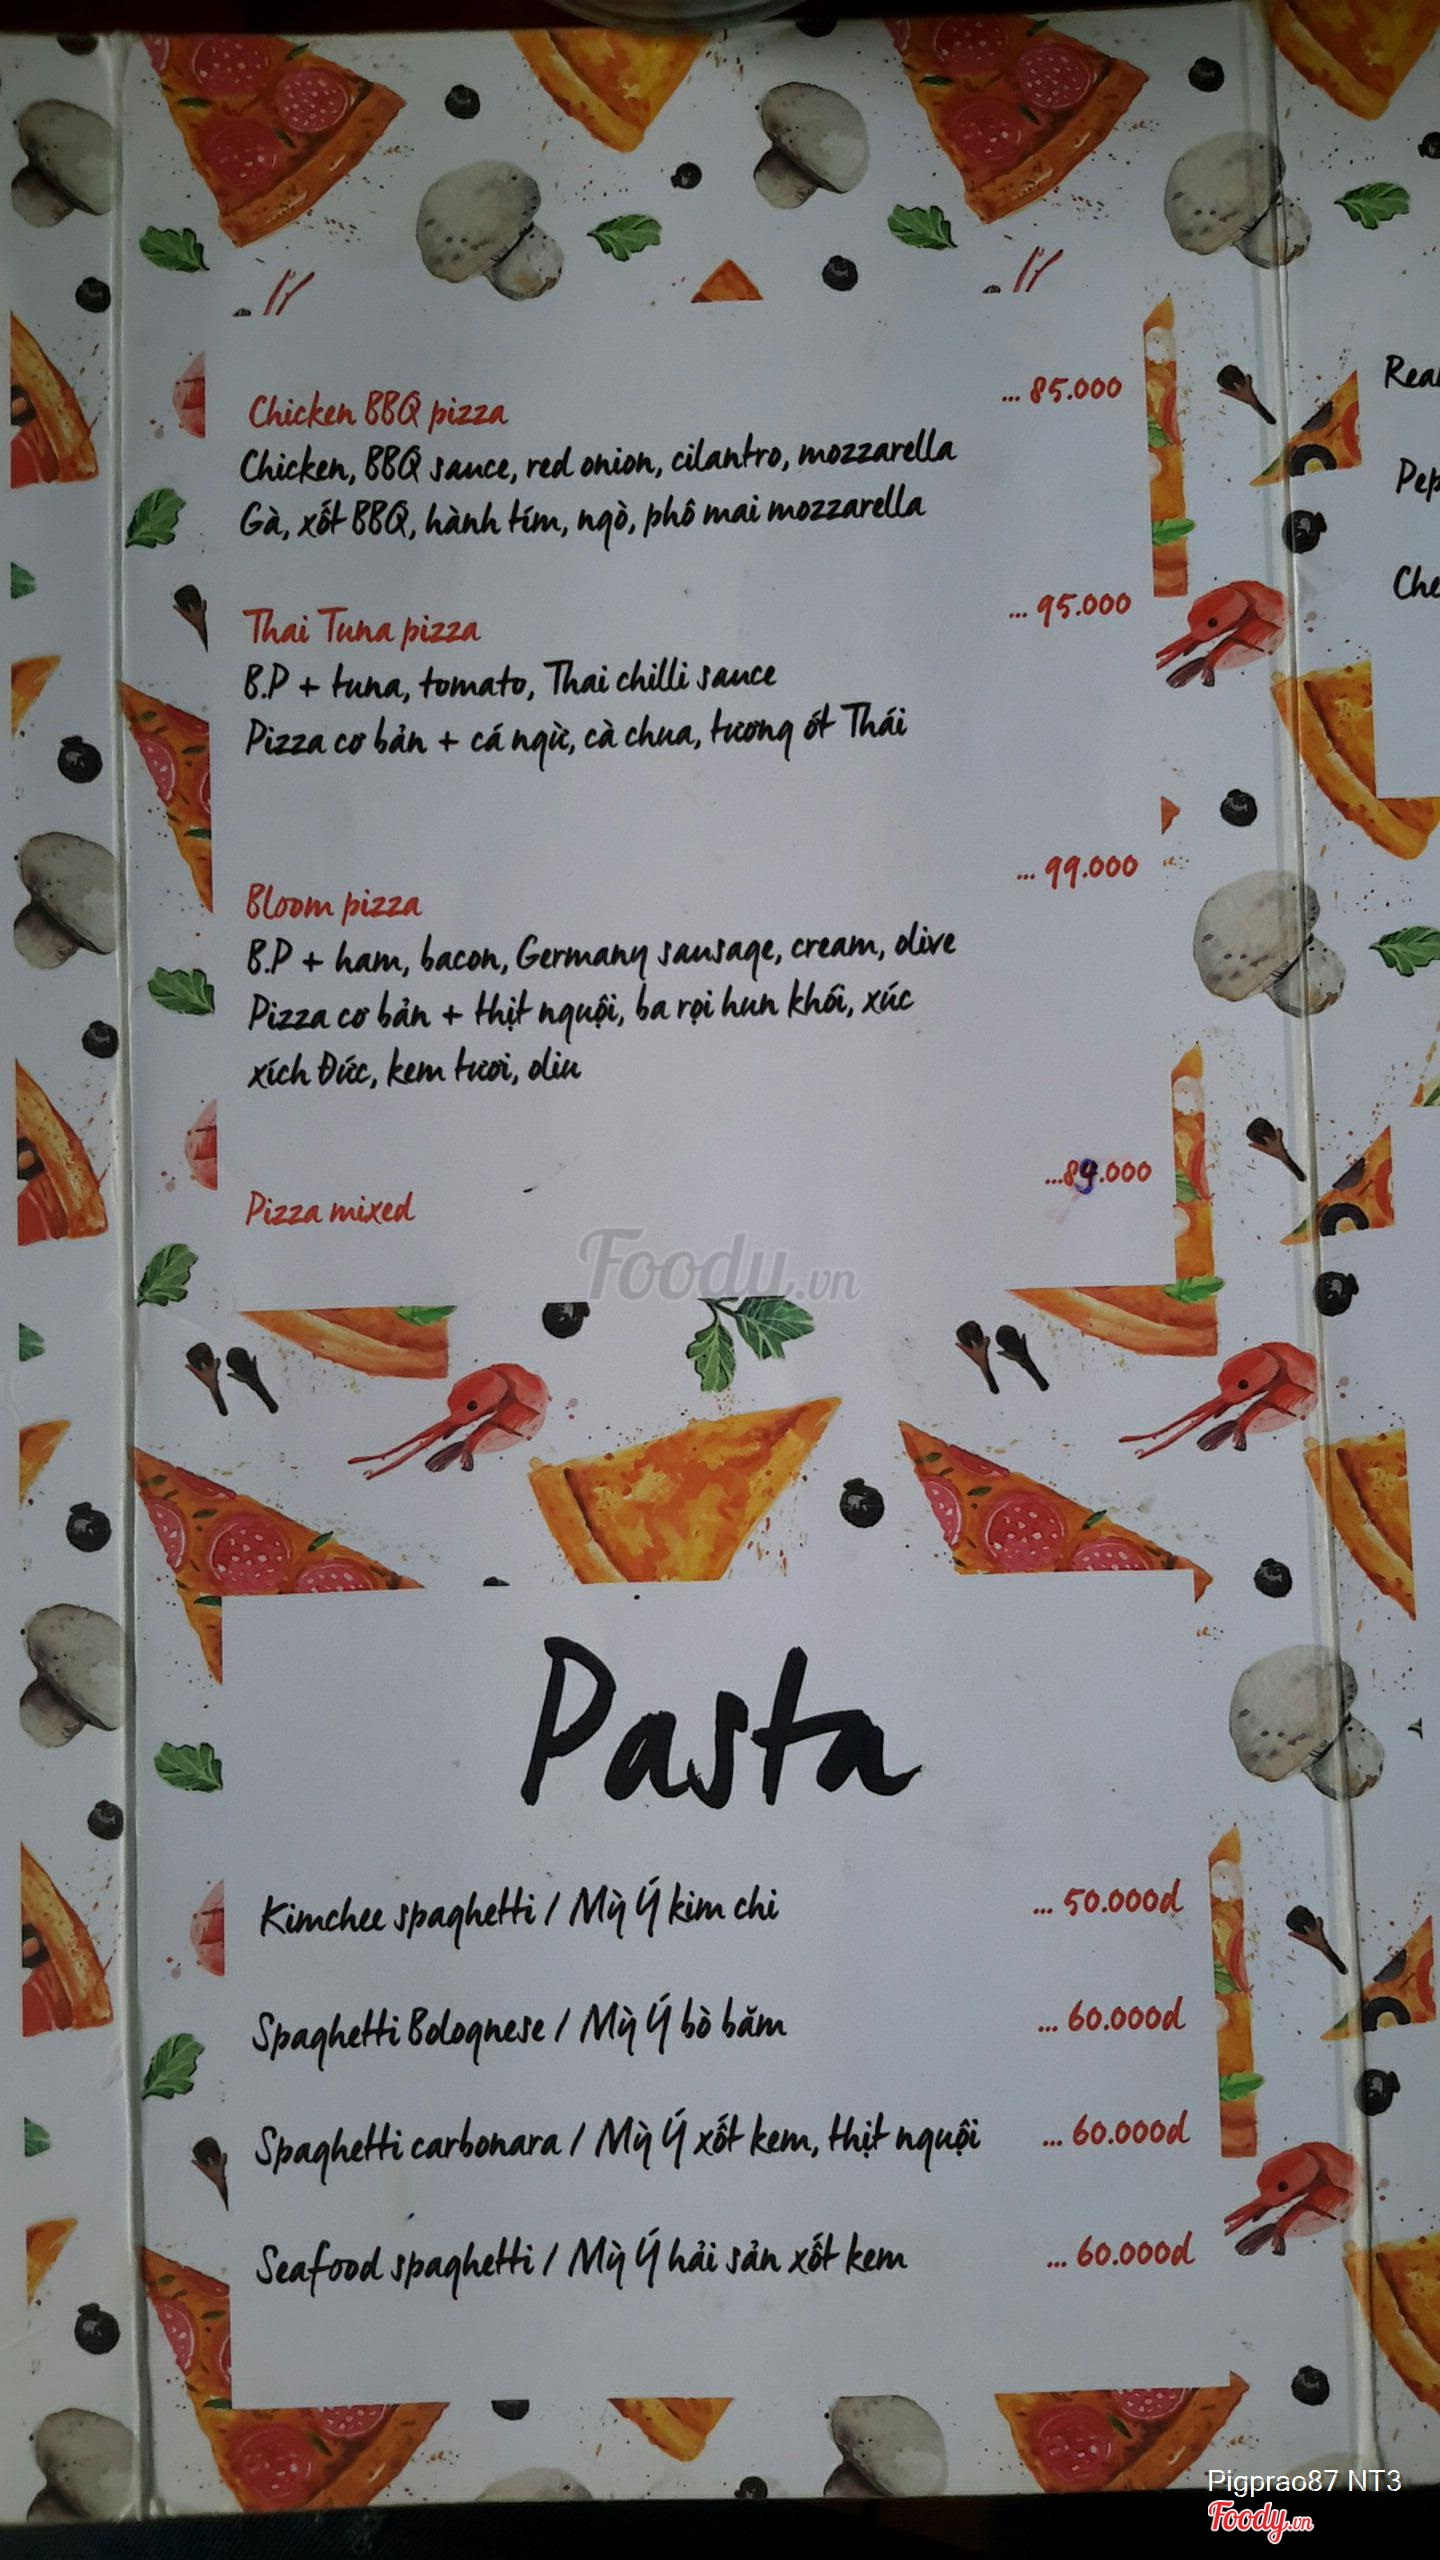 Chicken BBQ pizza ... 85.000
Chicken, BBQ sauce, red onion, cilantro, mozzarella
Gà, xốt BBQ, hành tím, ngò, phô mai mozzarella
Thai Tuna pizza ... 95.000
B.P + tuna, tomato, Thai chilli sauce
Pizza cơ bản + cá ngừ, cà chua, tương ớt Thái
Bloom pizza ... 99.000
B.P + ham, bacon, Germany sausage, cream, olive
Pizza cơ bản + thịt nguội, ba rọi hun khói, xúc
xích Đức, kem tươi, oliu
Pizza mixed ...89.000
Foody.vn
Pasta
Kimchee spaghetti / Mỳ Ý kim chi ... 50.000đ
Spaghetti Bolognese / Mỳ Ý bò băm ... 60.000đ
Spaghetti carbonara / Mỳ Ý xốt kem, thịt nguội ... 60.000đ
Seafood spaghetti / Mỳ Ý hải sản xốt kem ... 60.000đ
Pigprao87 NT3
Foody.vn